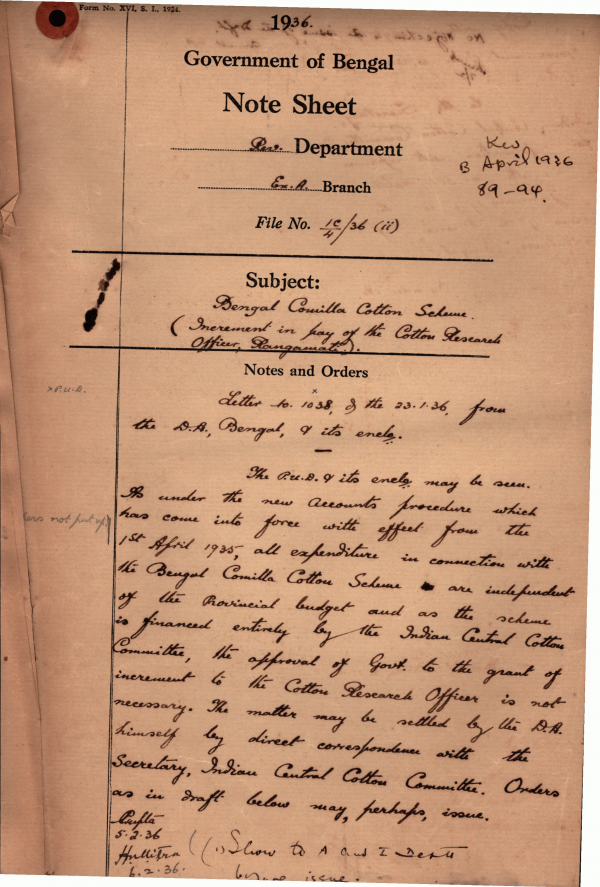 Form No. XVI, S. I., 1924.
1936.
Government of Bengal
Note Sheet
Rev. Department
Ex. A. Branch
B April 1936
89-94.
File No. 1C/4/36 (ii)
Subject:
Bengal Comilla Cotton Scheme.
(Increment in pay of the Cotton Research
Officer, Rangamati).
Notes and Orders
x P.U.D.
Letter No. 1038, d the 23.1.36, from
the D.A., Bengal, & its enclo.
The P.U.D. & its enclo may be seen.
As under the new accounts procedure which
has come into force with effect from the
not put up
1st April 1935, all expenditure in connection with
the Bengal Comilla Cotton Scheme are independent
of the Provincial budget and as the scheme
is financed entirely by the Indian Central Cotton
Committee, the approval of Govt. to the grant of
increment to the Cotton Research Officer is not
necessary. The matter may be settled by the D.A.
himself by direct correspondence with the
Secretary, Indian Central Cotton Committee. Orders
as in draft below may, perhaps, issue.
5.2.36
(1) Show to A and I Deptt
6.2.36.
before issue.